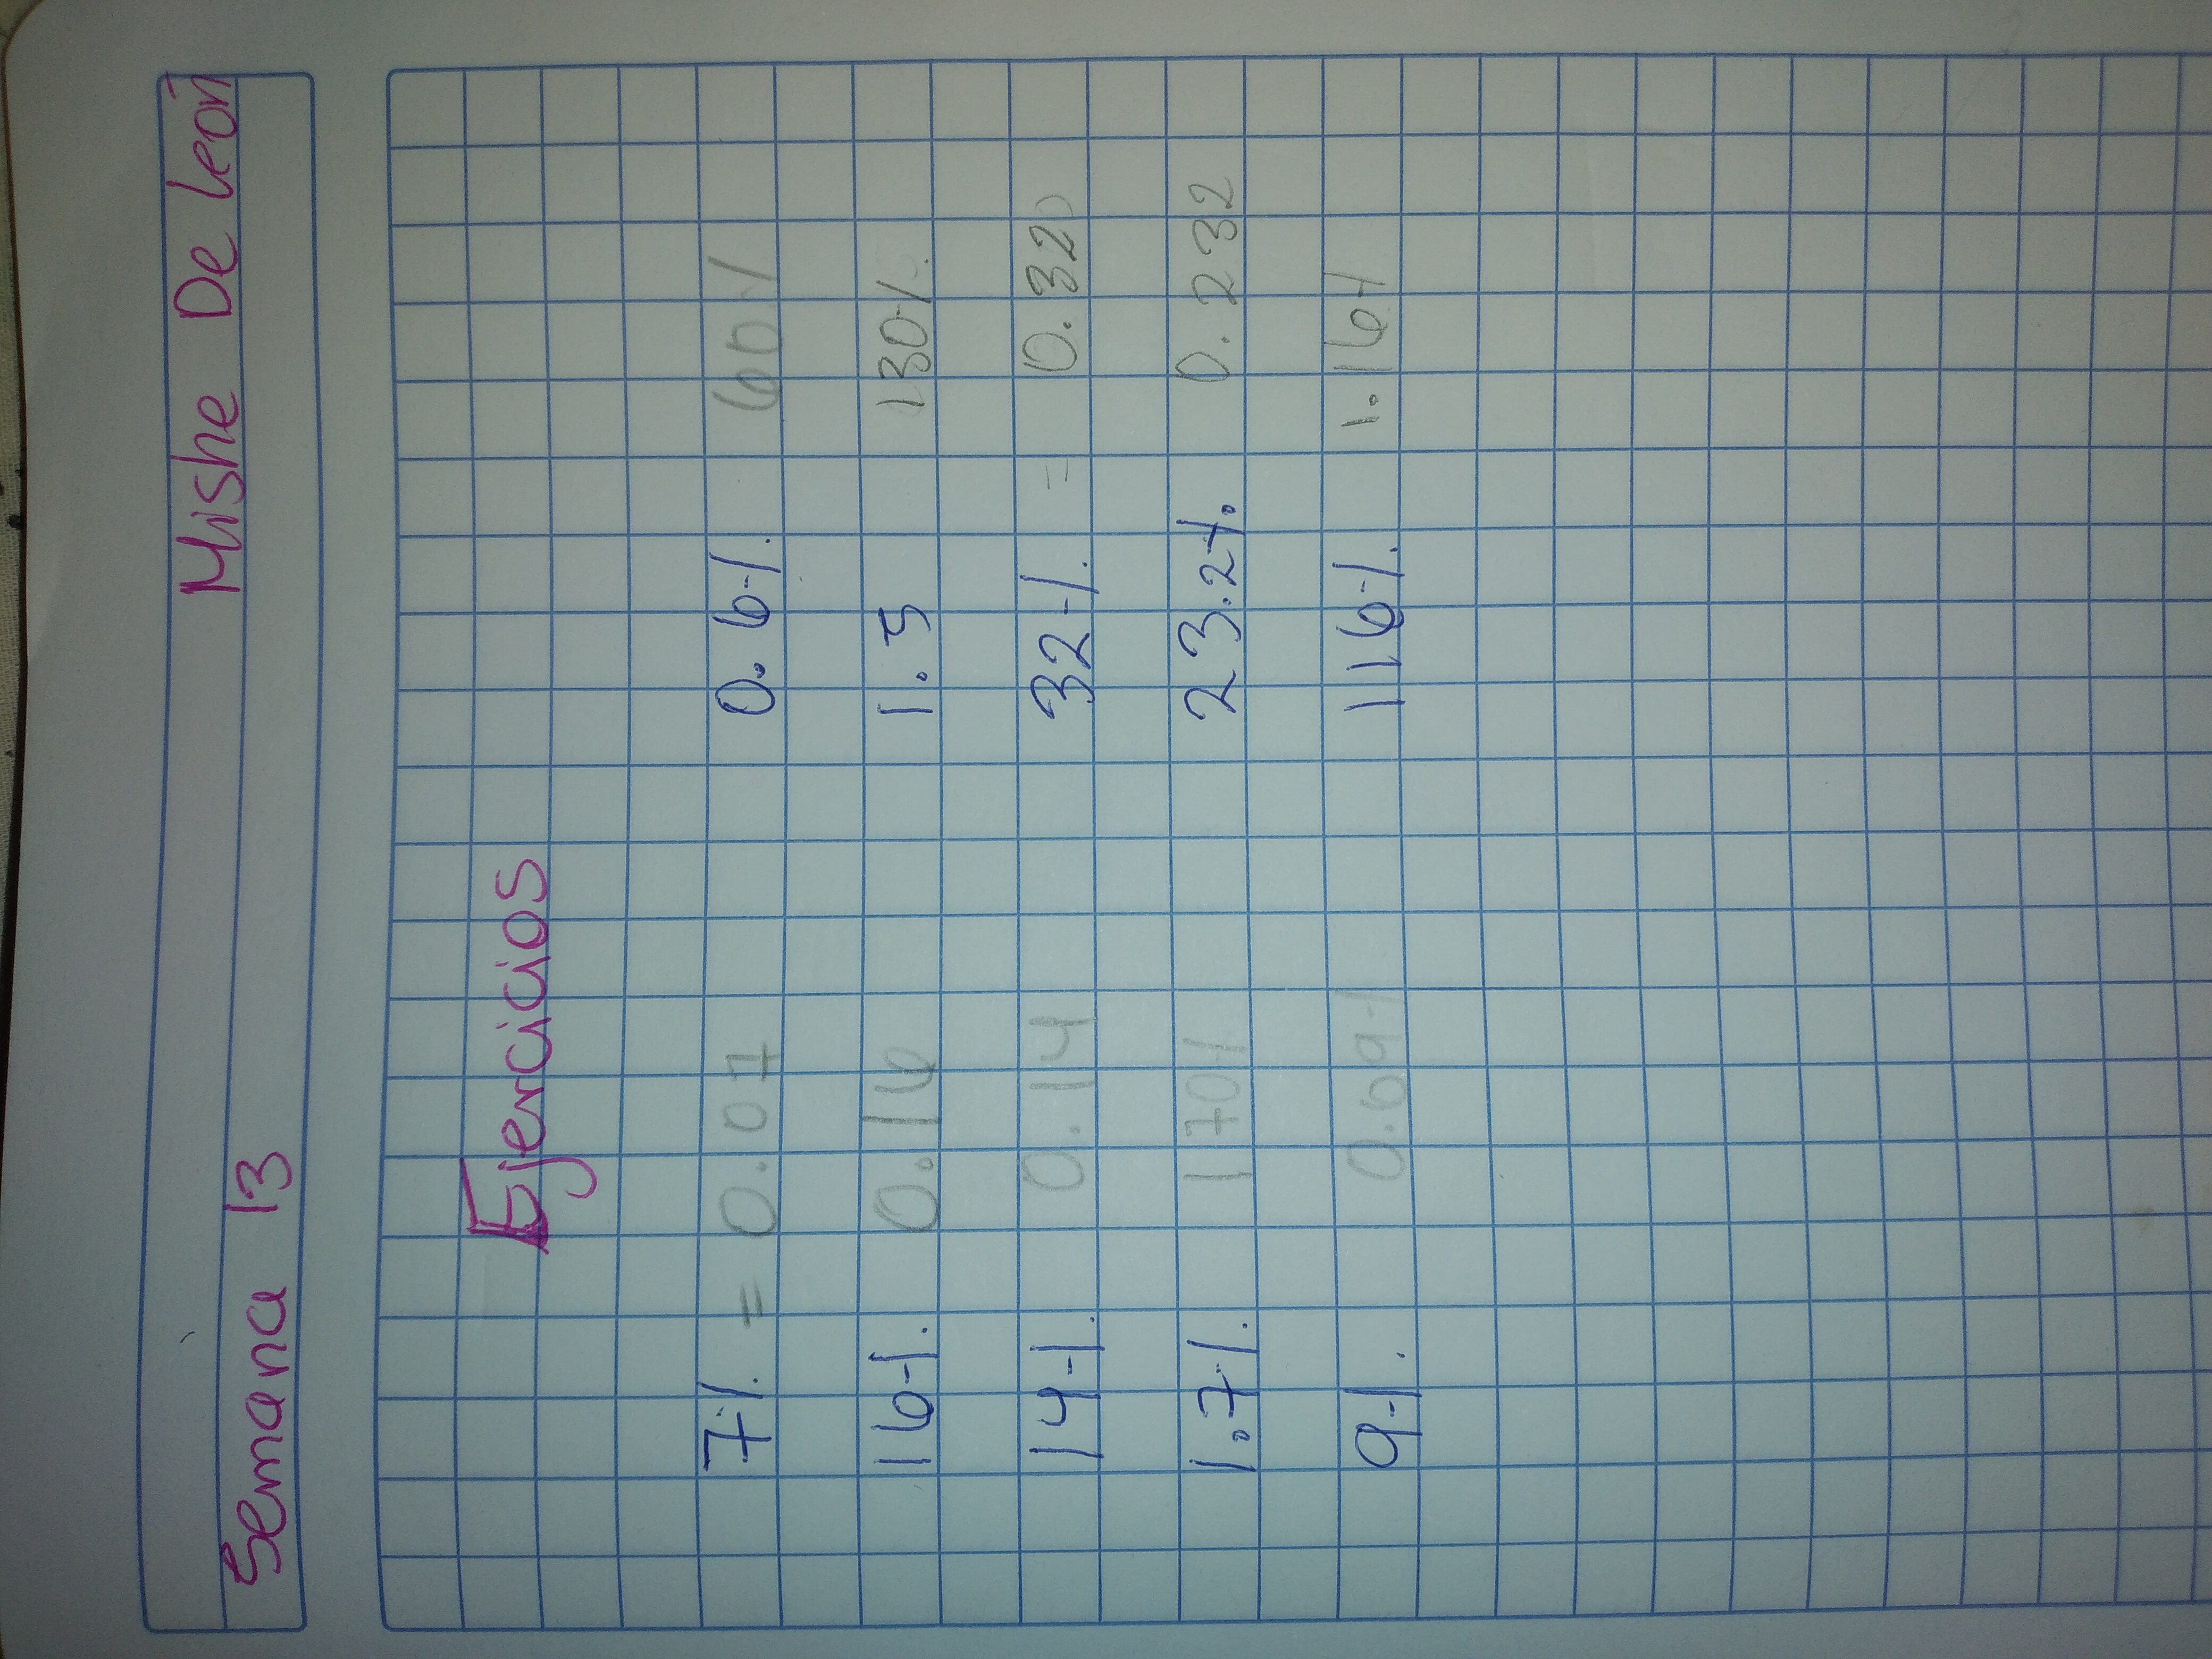 Semana 13 Mishe De león
Ejercicios
7% = 0.07 0.6% 60%
16% 0.16 1.5 130%
14% 0.14 32% = 0.320
1.7% 170% 23.2% 0.232
9% 0.09% 116% 1.16%